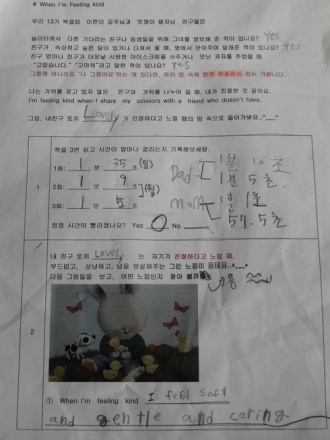 # When I'm Feeling kind
우리 13기 북클럽 이쁜이 공주님과 멋쟁이 왕자님 친구들은
놀이터에서 다른 기다리는 친구나 동생들을 위해 그네를 양보해 준 적이 있나요? Yes
친구가 속상하고 슬픈 일이 있거나 다쳐서 울 때, 옆에서 안아주며 달래준 적이 있나요? Yes
친구 엄마나 친구가 더운날 시원한 아이스크림을 사주거나 맛난 과자를 주었을 때
"고맙습니다." "고마워"라고 말한 적이 있나요? Yes
그중에 하나라도 '나 그랬어요'하는 게 있다면, 우리 맘 속에
나는 가위를 갖고 있지 않은 친구와 가위를 나누어 쓸 때, 내가 친절한 것 같아요.
I'm feeling kind when I share my scissors with a friend who doesn't have.
그럼, 내친구 토끼 Lovely 가 친절하다고 느낄 때의 맘 속으로 들어가봐요.^__^
1
책을 3번 읽고 시간이 얼마나 걸리는지 기록해보세요.
1회: 1 분 35 초
2회: 1 분 9 초
3회: 1 분 5 초
Dad 1분 10초
1분 5초
mom 1분 1초
57.5초
점점 시간이 빨라졌나요? Yes No
2
내 친구 토끼 Lovely 는 자기가 친절하다고 느낄 때,
부드럽고, 상냥하고, 남을 보살펴주는 그런 느낌이 든데요.
다음 그림들을 보고, 어떤 느낌인지 찾아
① When I'm feeling kind I feel soft
and gentle and caring